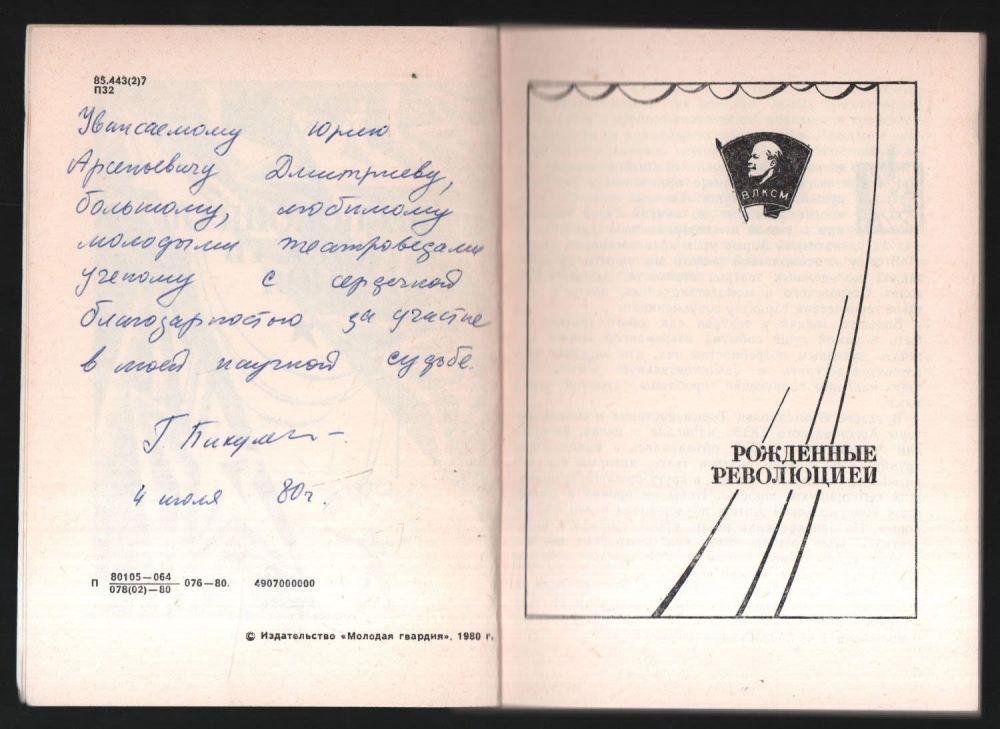 85.443(2)7
П32
Уважаемому Юрию
Арсеньевичу Дмитриеву,
большому, любимому
молодыми театроведами
ученому с сердечной
благодарностью за участие
в моей научной судьбе.
4 июля 80 г.
П 80105—064
078(02)—80 076—80. 4907000000
© Издательство «Молодая гвардия», 1980 г.
ВЛКСМ
РОЖДЕННЫЕ
РЕВОЛЮЦИЕЙ